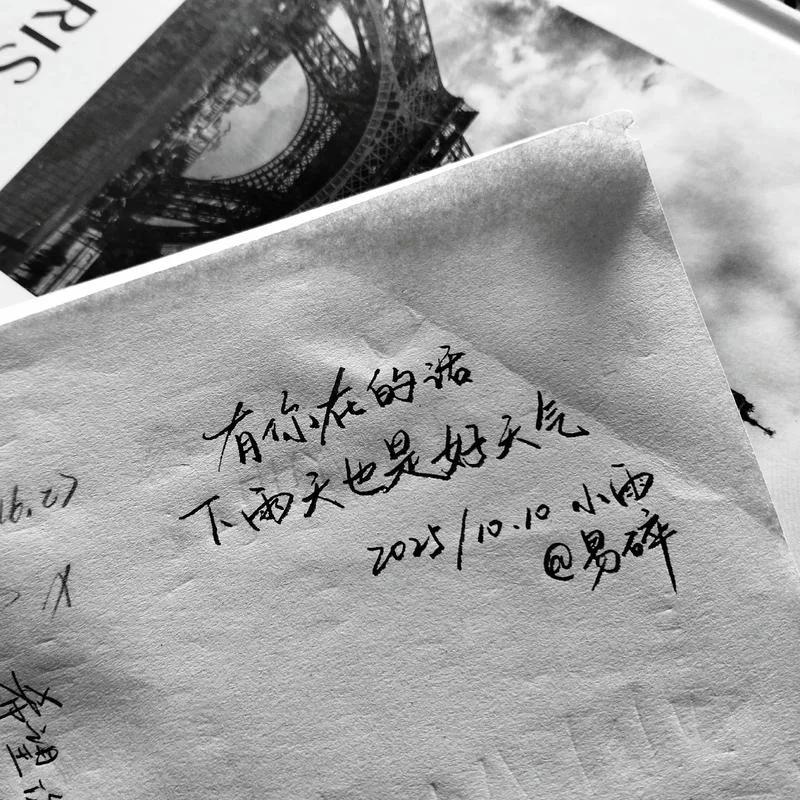 RIS
有你在的话
下雨天也是好天气
2025/10.10 小雨
@易碎
希望